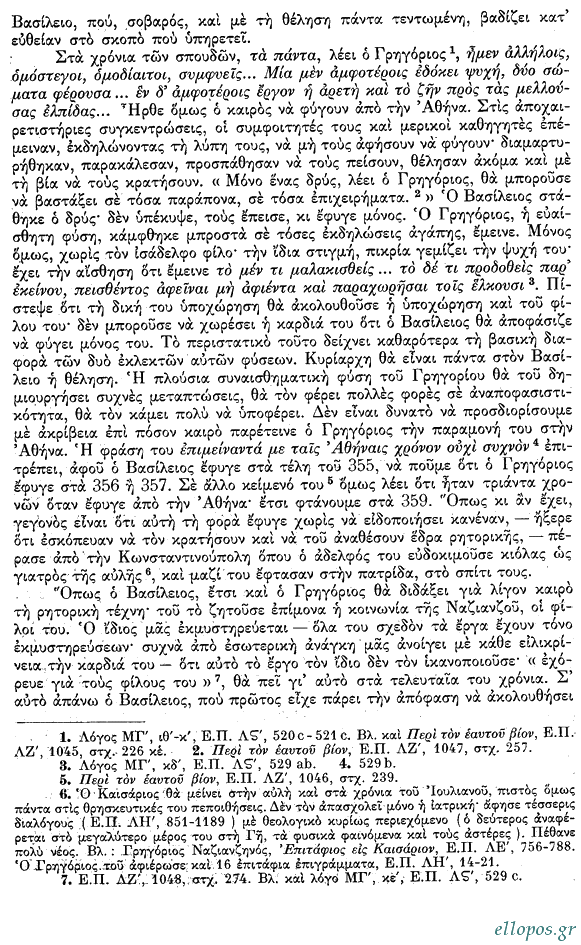 Βασίλειο, πού, σοβαρός, καὶ μὲ τὴ θέληση πάντα τεντωμένη, βαδίζει κατ'
εὐθείαν στὸ σκοπὸ ποὺ ὑπηρετεῖ.
Στὰ χρόνια τῶν σπουδῶν, τὰ πάντα, λέει ὁ Γρηγόριος¹, ἦμεν ἀλλήλοις,
ὁμόστεγοι, ὁμοδίαιτοι, συμφυεῖς... Μία μὲν ἀμφοτέροις ἐδόκει ψυχή, δύο σώ-
ματα φέρουσα... ἓν δ' ἀμφοτέροις ἔργον ἡ ἀρετὴ καὶ τὸ ζῆν πρὸς τὰς μελλού-
σας ἐλπίδας... Ἦρθε ὅμως ὁ καιρὸς νὰ φύγουν ἀπὸ τὴν Ἀθήνα. Στὶς ἀποχαι-
ρετιστήριες συγκεντρώσεις, οἱ συμφοιτητές τους καὶ μερικοὶ καθηγητὲς ἐπέ-
μειναν, ἐκδηλώνοντας τὴ λύπη τους, νὰ μὴ τοὺς ἀφήσουν νὰ φύγουν· διαμαρτυ-
ρήθηκαν, παρακάλεσαν, προσπάθησαν νὰ τοὺς πείσουν, θέλησαν ἀκόμα καὶ μὲ
τὴ βία νὰ τοὺς κρατήσουν. « Μόνο ἕνας δρύς, λέει ὁ Γρηγόριος, θὰ μποροῦσε
νὰ βαστάξει σὲ τόσα παράπονα, σὲ τόσα ἐπιχειρήματα. ² » Ὁ Βασίλειος στά-
θηκε ὁ δρύς· δὲν ὑπέκυψε, τοὺς ἔπεισε, κι ἔφυγε μόνος. Ὁ Γρηγόριος, ἡ εὐαί-
σθητη φύση, κάμφθηκε μπροστὰ σὲ τόσες ἐκδηλώσεις ἀγάπης, ἔμεινε. Μόνος
ὅμως, χωρὶς τὸν ἰσάδελφο φίλο· τὴν ἴδια στιγμή, πικρία γεμίζει τὴν ψυχή του·
ἔχει τὴν αἴσθηση ὅτι ἔμεινε τὸ μέν τι μαλακισθείς ... τὸ δέ τι προδοθεὶς παρ'
ἐκείνου, πεισθέντος ἀφεῖναι μὴ ἀφιέντα καὶ παραχωρῆσαι τοῖς ἕλκουσι ³. Πί-
στεψε ὅτι τὴ δική του ὑποχώρηση θὰ ἀκολουθοῦσε ἡ ὑποχώρηση καὶ τοῦ φί-
λου του· δὲν μποροῦσε νὰ χωρέσει ἡ καρδιά του ὅτι ὁ Βασίλειος θὰ ἀποφάσιζε
νὰ φύγει μόνος του. Τὸ περιστατικὸ τοῦτο δείχνει καθαρότερα τὴ βασικὴ δια-
φορὰ τῶν δυὸ ἐκλεκτῶν αὐτῶν φύσεων. Κυρίαρχη θὰ εἶναι πάντα στὸν Βασί-
λειο ἡ θέληση. Ἡ πλούσια συναισθηματικὴ φύση τοῦ Γρηγορίου θὰ τοῦ δη-
μιουργήσει συχνὲς μεταπτώσεις, θὰ τὸν φέρει πολλὲς φορὲς σὲ ἀναποφασιστι-
κότητα, θὰ τὸν κάμει πολὺ νὰ ὑποφέρει. Δὲν εἶναι δυνατὸ νὰ προσδιορίσουμε
μὲ ἀκρίβεια ἐπὶ πόσον καιρὸ παρέτεινε ὁ Γρηγόριος τὴν παραμονή του στὴν
Ἀθήνα. Ἡ φράση του ἐπιμείναντά με ταῖς Ἀθήναις χρόνον οὐχὶ συχνόν ⁴ ἐπι-
τρέπει, ἀφοῦ ὁ Βασίλειος ἔφυγε στὰ τέλη τοῦ 355, νὰ ποῦμε ὅτι ὁ Γρηγόριος
ἔφυγε στὰ 356 ἢ 357. Σὲ ἄλλο κείμενό του ⁵ ὅμως λέει ὅτι ἦταν τριάντα χρο-
νῶν ὅταν ἔφυγε ἀπὸ τὴν Ἀθήνα· ἔτσι φτάνουμε στὰ 359. Ὅπως κι ἂν ἔχει,
γεγονὸς εἶναι ὅτι αὐτὴ τὴ φορὰ ἔφυγε χωρὶς νὰ εἰδοποιήσει κανέναν, — ἤξερε
ὅτι ἐσκόπευαν νὰ τὸν κρατήσουν καὶ νὰ τοῦ ἀναθέσουν ἕδρα ρητορικῆς, — πέ-
ρασε ἀπὸ τὴν Κωνσταντινούπολη ὅπου ὁ ἀδελφός του εὐδοκιμοῦσε κιόλας ὡς
γιατρὸς τῆς αὐλῆς ⁶, καὶ μαζί του ἔφτασαν στὴν πατρίδα, στὸ σπίτι τους.
Ὅπως ὁ Βασίλειος, ἔτσι καὶ ὁ Γρηγόριος θὰ διδάξει γιὰ λίγον καιρὸ
τὴ ρητορικὴ τέχνη· τοῦ τὸ ζητοῦσε ἐπίμονα ἡ κοινωνία τῆς Ναζιανζοῦ, οἱ φί-
λοι του. Ὁ ἴδιος μᾶς ἐκμυστηρεύεται — ὅλα του σχεδὸν τὰ ἔργα ἔχουν τόνο
ἐκμυστηρεύσεων· συχνὰ ἀπὸ ἐσωτερικὴ ἀνάγκη μᾶς ἀνοίγει μὲ κάθε εἰλικρί-
νεια τὴν καρδιά του — ὅτι αὐτὸ τὸ ἔργο τὸν ἴδιο δὲν τὸν ἱκανοποιοῦσε· « ἐχό-
ρευε γιὰ τοὺς φίλους του »⁷, θὰ πεῖ γι' αὐτὸ στὰ τελευταῖα του χρόνια. Σ'
αὐτὸ ἀπάνω ὁ Βασίλειος, ποὺ πρῶτος εἶχε πάρει τὴν ἀπόφαση νὰ ἀκολουθήσει
1. Λόγος ΜΓ', ιθ'-κ', Ε.Π. Λϛ', 520 c - 521 c. Βλ. καὶ Περὶ τὸν ἑαυτοῦ βίον, Ε.Π.
ΛΖ', 1045, στχ. 226 κέ. 2. Περὶ τὸν ἑαυτοῦ βίον, Ε.Π. ΛΖ', 1047, στχ. 257.
3. Λόγος ΜΓ', κδ', Ε.Π. Λϛ', 529 ab. 4. 529 b.
5. Περὶ τὸν ἑαυτοῦ βίον, Ε.Π. ΛΖ', 1046, στχ. 239.
6. Ὁ Καισάριος θὰ μείνει στὴν αὐλὴ καὶ στὰ χρόνια τοῦ Ἰουλιανοῦ, πιστὸς ὅμως
πάντα στὶς θρησκευτικές του πεποιθήσεις. Δὲν τὸν ἀπασχολεῖ μόνο ἡ ἰατρική· ἄφησε τέσσερις
διαλόγους ( Ε.Π. ΛΗ', 851-1189 ) μὲ θεολογικὸ κυρίως περιεχόμενο ( ὁ δεύτερος ἀναφέ-
ρεται στὸ μεγαλύτερο μέρος του στὴ Γῆ, τὰ φυσικὰ φαινόμενα καὶ τοὺς ἀστέρες ). Πέθανε
πολὺ νέος. Βλ. : Γρηγόριος Ναζιανζηνός, Ἐπιτάφιος εἰς Καισάριον, Ε.Π. ΛΕ', 756-788.
Ὁ Γρηγόριος τοῦ ἀφιέρωσε καὶ 16 ἐπιτάφια ἐπιγράμματα, Ε.Π. ΛΗ', 14-21.
7. Ε.Π. ΛΖ', 1048, στχ. 274. Βλ. καὶ λόγο ΜΓ', κέ', Ε.Π. Λϛ', 529 c.
ellopos.gr